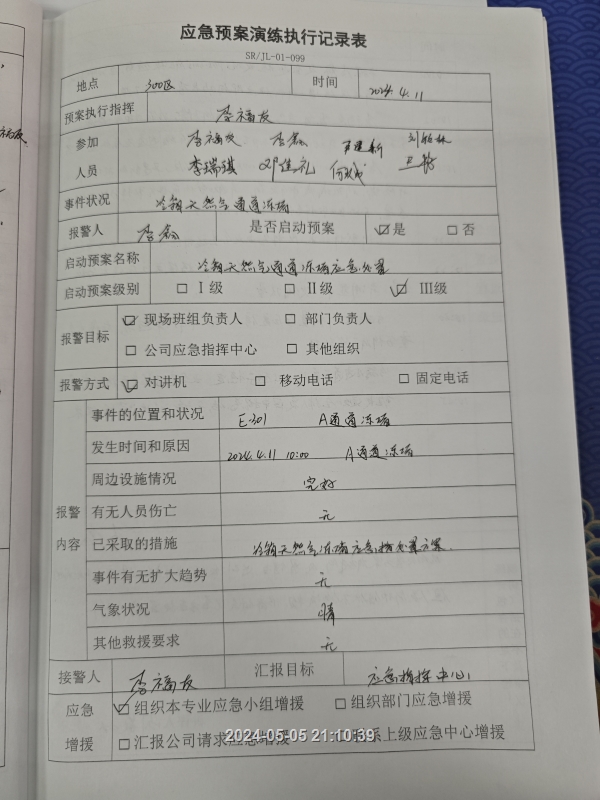 应急预案演练执行记录表
SR/JL-01-099
地点 300区 时间 2024.4.11
预案执行指挥 李福友
参加 李福友 李鑫
人员 李瑞琪 邓进礼
事件状况 冷箱天然气通道冻堵
报警人 李鑫 是否启动预案 ☑是 □否
启动预案名称 冷箱天然气通道冻堵应急处置
启动预案级别 □ Ⅰ级 □ Ⅱ级 ☑ Ⅲ级
报警目标 ☑ 现场班组负责人 □ 部门负责人
□ 公司应急指挥中心 □ 其他组织
报警方式 ☑ 对讲机 □ 移动电话 □ 固定电话
报警内容
事件的位置和状况 E-301 A通道冻堵
发生时间和原因 2024.4.11 10:00 A通道冻堵
周边设施情况 完好
有无人员伤亡 无
已采取的措施 冷箱天然气冻堵应急处置方案.
事件有无扩大趋势 无
气象状况 晴
其他救援要求 无
接警人 李福友 汇报目标 应急指挥中心
应急增援
☑ 组织本专业应急小组增援 □ 组织部门应急增援
□ 汇报公司请求应急增援 系上级应急中心增援
2024-05-05 21:10:39